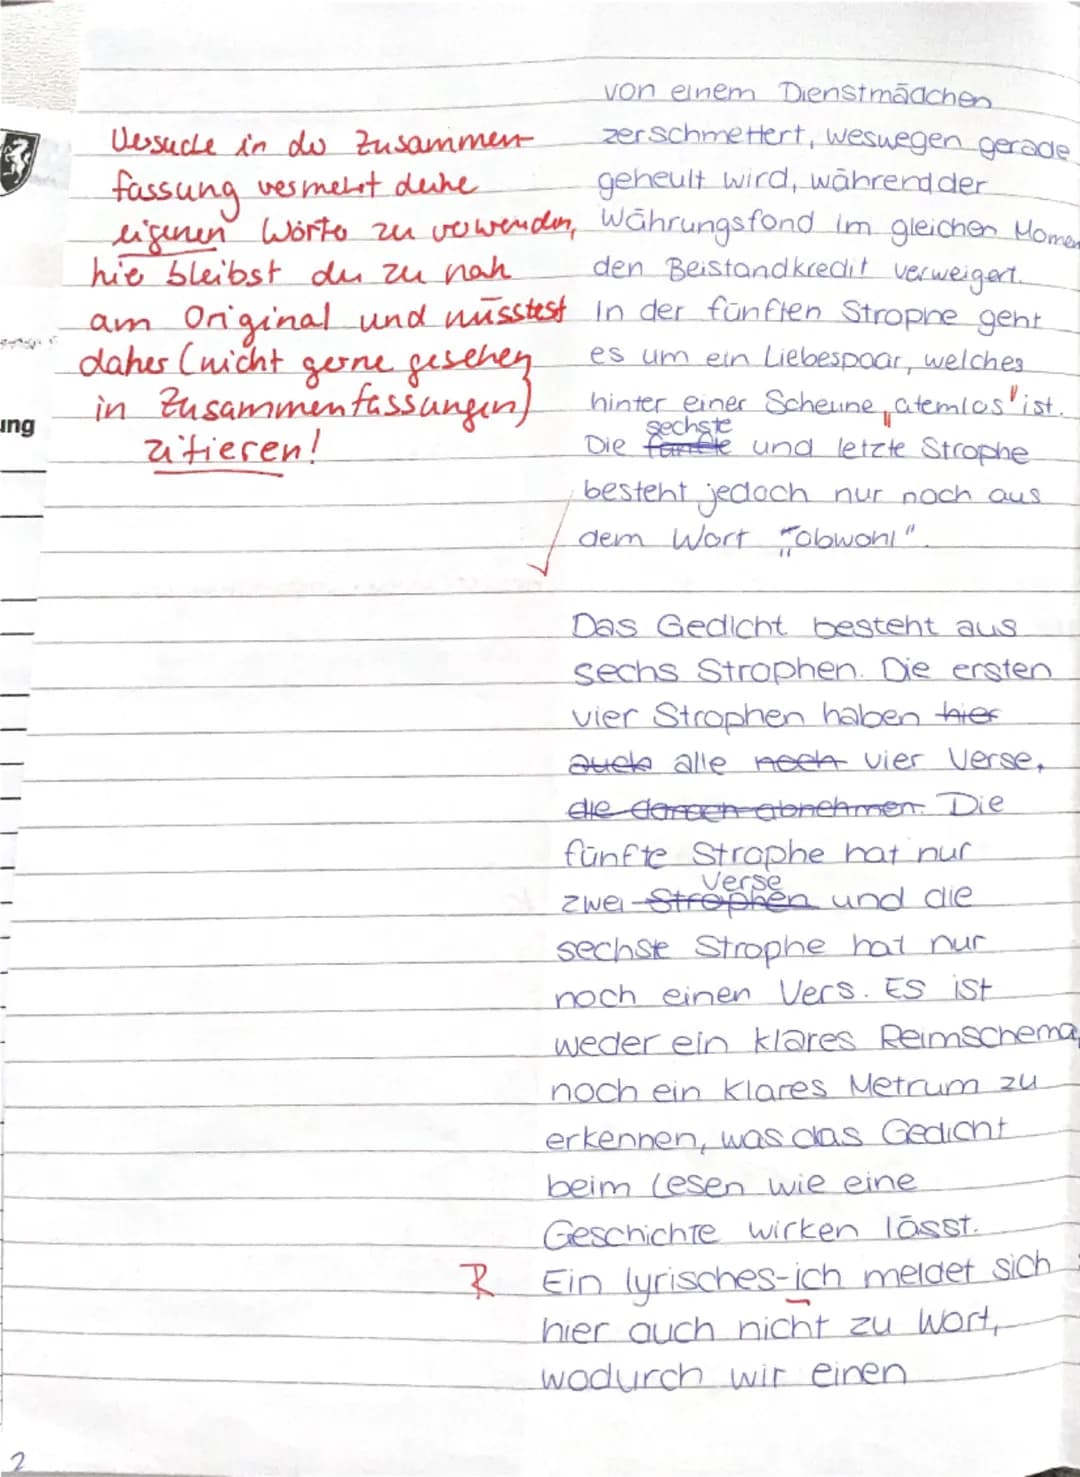 Versuche in der Zusammen-
fassung vermehrt deine
eigenen Wörter zu verwenden,
hier bleibst du zu nah
am Original und müsstest
daher (nicht gerne gesehen
in Zusammenfassungen)
zitieren!
ung
von einem Dienstmädchen
zerschmettert, weswegen gerade
geheult wird, während der
Währungsfond im gleichen Momen
den Beistandkredit verweigert.
In der fünften Strophe geht
es um ein Liebespaar, welches
hinter einer Scheune „atemlos" ist.
sechste
Die fünfte und letzte Strophe
besteht jedoch nur noch aus
dem Wort „obwohl".
Das Gedicht besteht aus
sechs Strophen. Die ersten
vier Strophen haben hier
auch alle noch vier Verse,
die danach abnehmen. Die
fünfte Strophe hat nur
Verse
zwei Strophen und die
sechste Strophe hat nur
noch einen Vers. Es ist
weder ein klares Reimschema,
noch ein klares Metrum zu
erkennen, was das Gedicht
beim Lesen wie eine
Geschichte wirken lässt.
R Ein lyrisches-ich meldet sich
hier auch nicht zu Wort,
wodurch wir einen
2